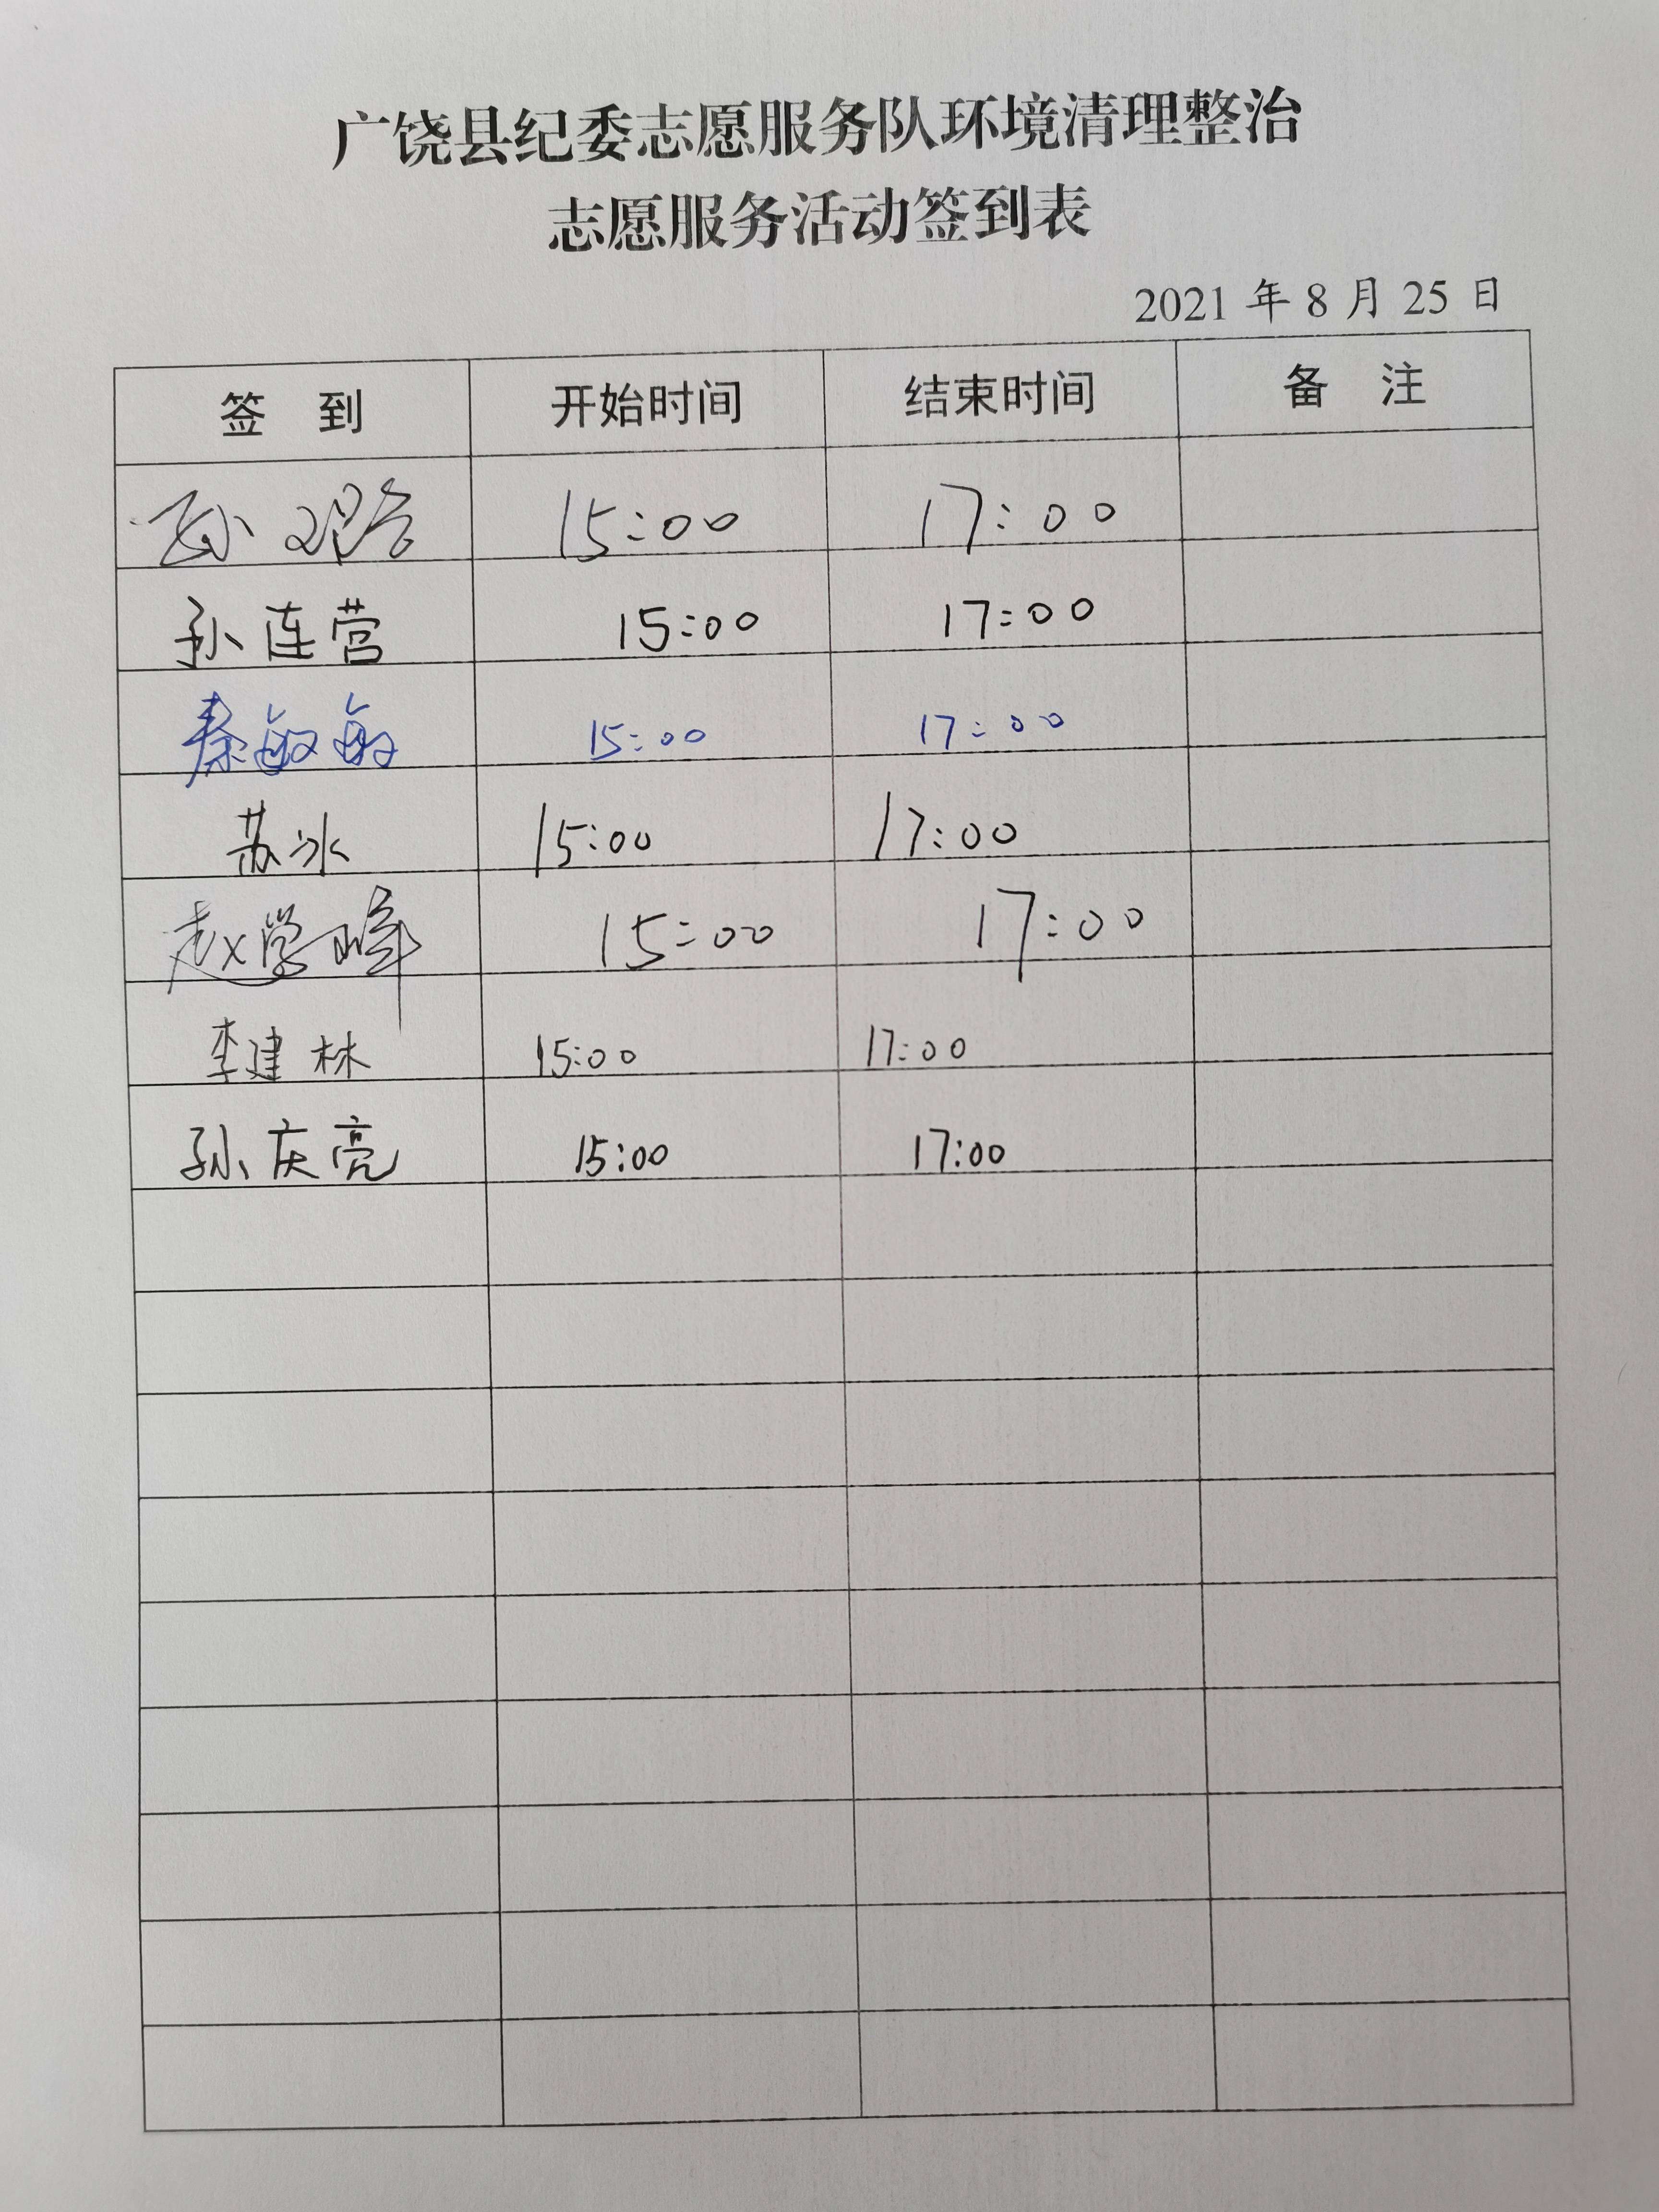 广饶县纪委志愿服务队环境清理整治
志愿服务活动签到表
2021 年 8 月 25 日
签 到 开始时间 结束时间 备 注
孙 15:00 17:00
孙连营 15:00 17:00
秦敏敏 15:00 17:00
苏冰 15:00 17:00
赵学峰 15:00 17:00
李建林 15:00 17:00
孙庆亮 15:00 17:00